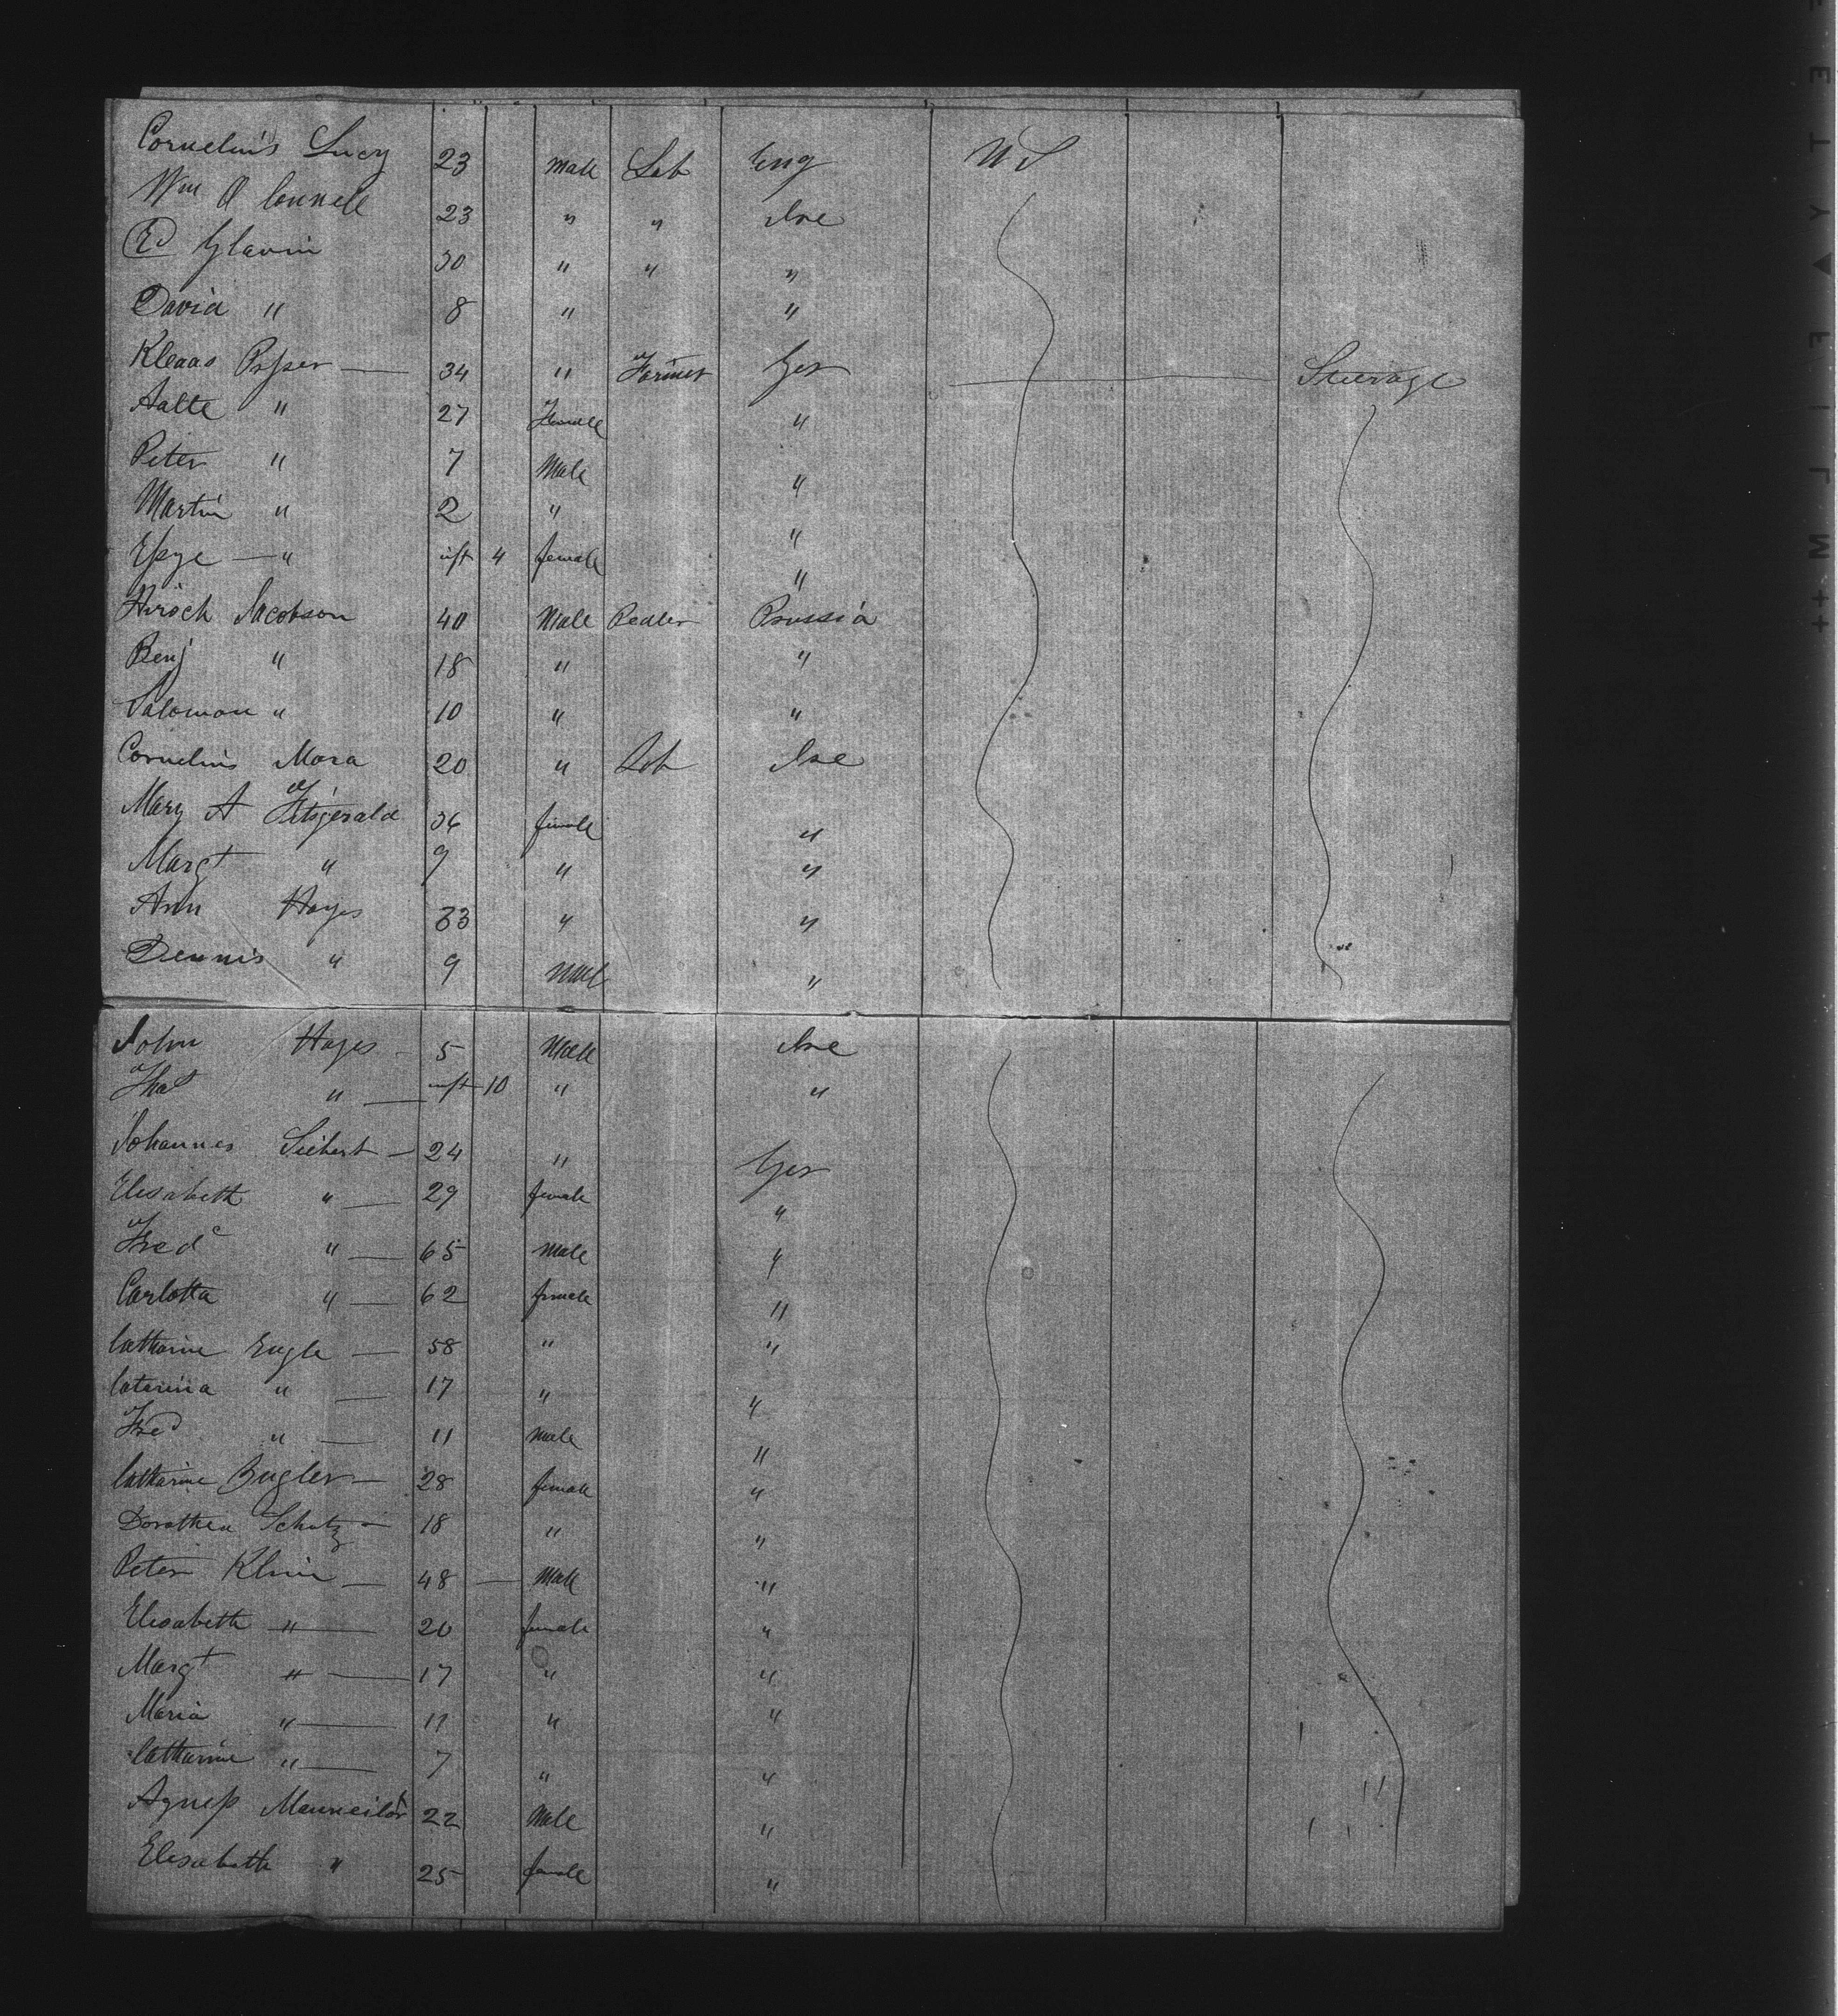 Cornelius Lucy 23 Male Lab Eng U S
Wm O Connell 23 " " Ire
Ed Glavin 30 " " "
David " 8 " "
Kleaas 34 " Farmer Ger Steerage
Aalte " 27 Female "
Peter " 7 Male "
Martin " 2 " "
" inft 4 female "
Hirsch Jacobson 40 Male Pedler Prussia
Benj " 18 " "
Salomon " 10 " "
Cornelius Mara 20 " Lab Ire
Mary A Fitsgerald 36 female "
Margt " 9 " "
Ann Hayes 33 " "
Dennis " 9 Male "
John Hayes - 5 Male Ire
Thos " — inft 10 " "
Johannes Siebert — 24 " Ger
Elisabeth " — 29 female "
Fredc " — 65 Male "
Carlotta " — 62 female "
Catharine Engle — 58 " "
Catarina " — 17 " "
Fred " — 11 Male "
Catharine — 28 female "
Dorothea Schutz — 18 " "
Peter Klein — 48 — Male "
Elisabeth " — 20 female "
Margt " — 17 " "
Maria " — 11 " "
Catharine " — 7 " "
Agness 22 Male "
Elisabeth " 25 female "